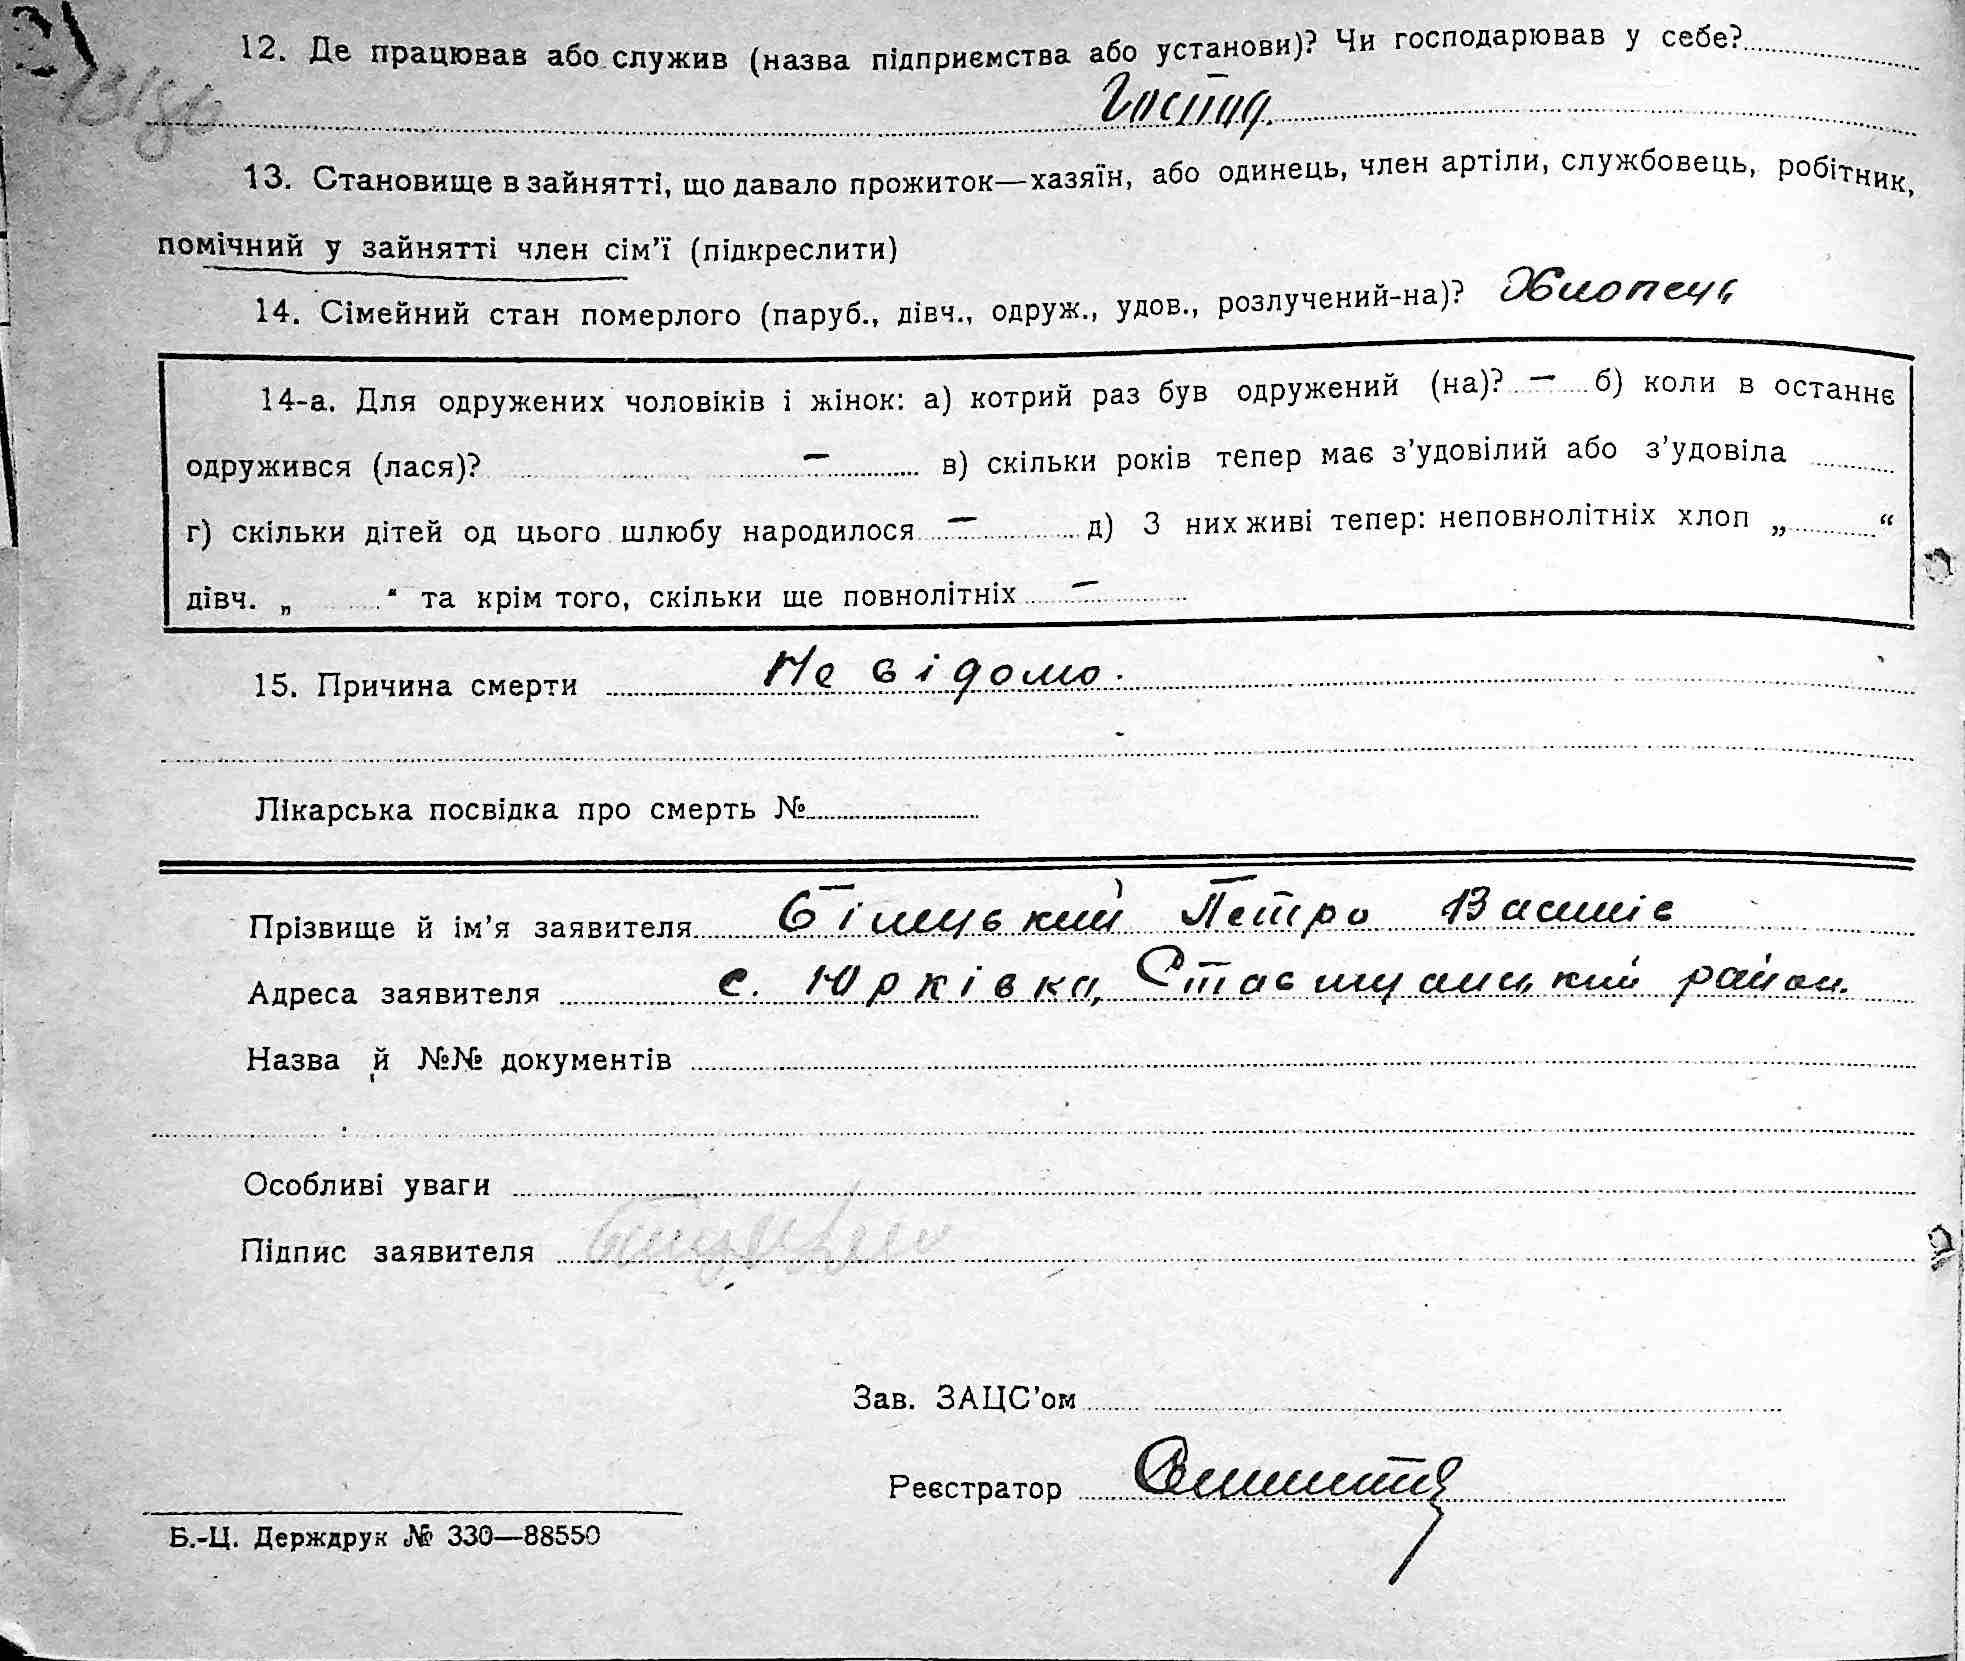 12. Де працював або служив (назва підприємства або установи)? Чи господарював у себе?
13. Становище в зайнятті, що давало прожиток—хазяїн, або одинець, член артіли, службовець, робітник,
помічний у зайнятті член сім'ї (підкреслити)
14. Сімейний стан померлого (паруб., дівч., одруж., удов., розлучений-на)? Хлопець
14-а. Для одружених чоловіків і жінок: а) котрий раз був одружений (на)? — б) коли в останнє
одружився (лася)? — в) скільки років тепер має з'удовілий або з'удовіла
г) скільки дітей од цього шлюбу народилося — д) З них живі тепер: неповнолітніх хлоп „ “
дівч. „ “ та крім того, скільки ще повнолітніх —
15. Причина смерти Не відомо.
Лікарська посвідка про смерть №
Прізвище й ім'я заявителя Білецький Петро Василів
Адреса заявителя с. Юрківка, Ставищанський район.
Назва й №№ документів
Особливі уваги
Підпис заявителя
Зав. ЗАЦС'ом
Реєстратор
Б.-Ц. Держдрук № 330—88550